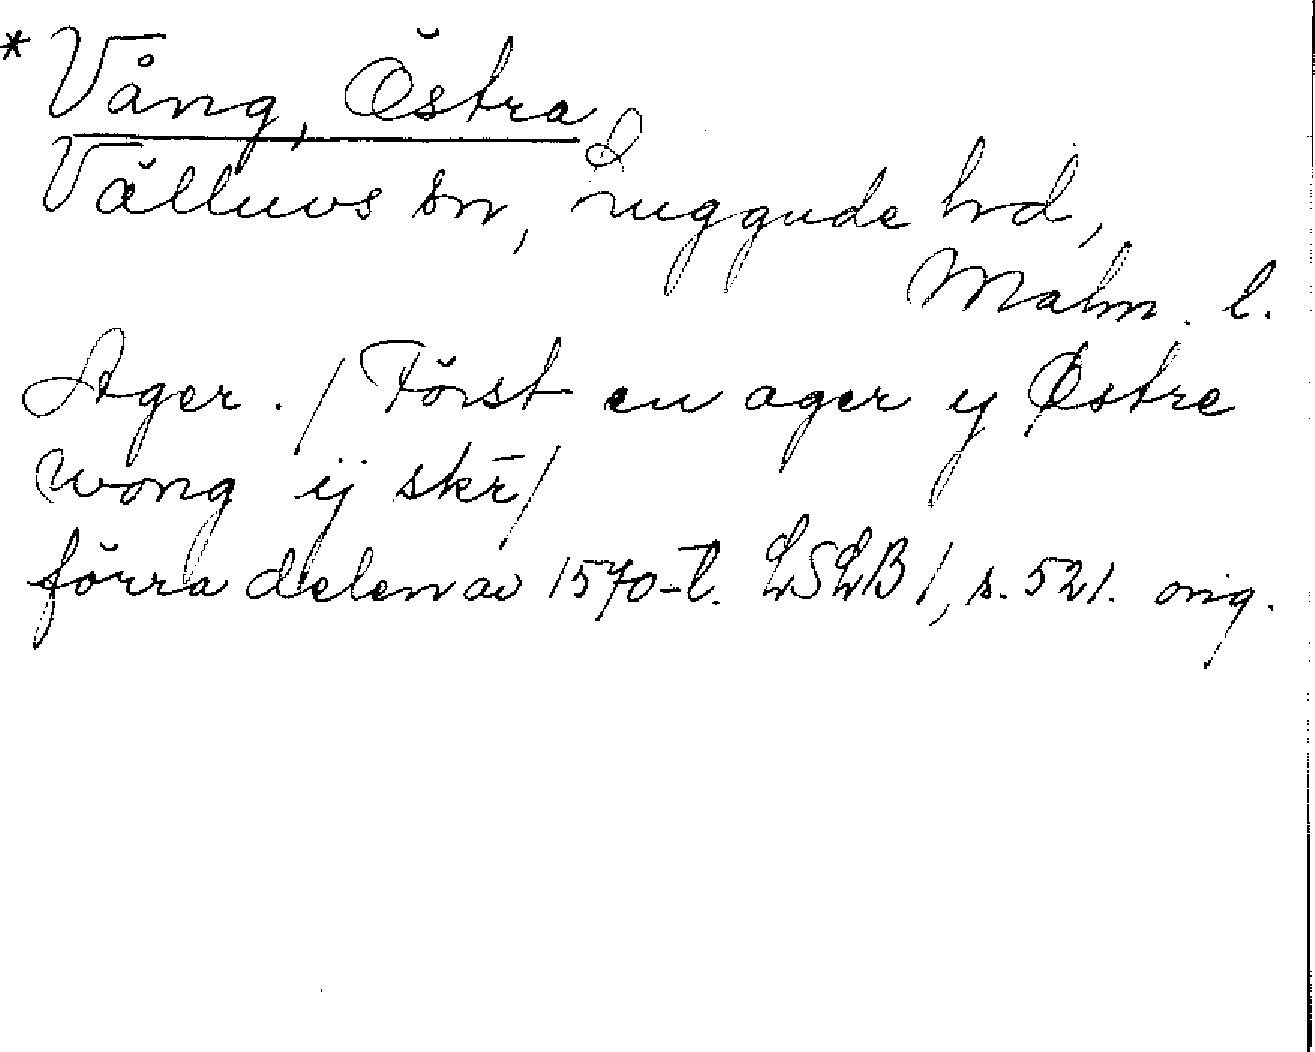 * Vång, Östra
Välluvs sn, Luggude hd,
Malm. l.
Ager. / Först en ager y Østre
wong ij skr̄ /
förra delen av 1570-t. LSLB 1, s. 521. orig.